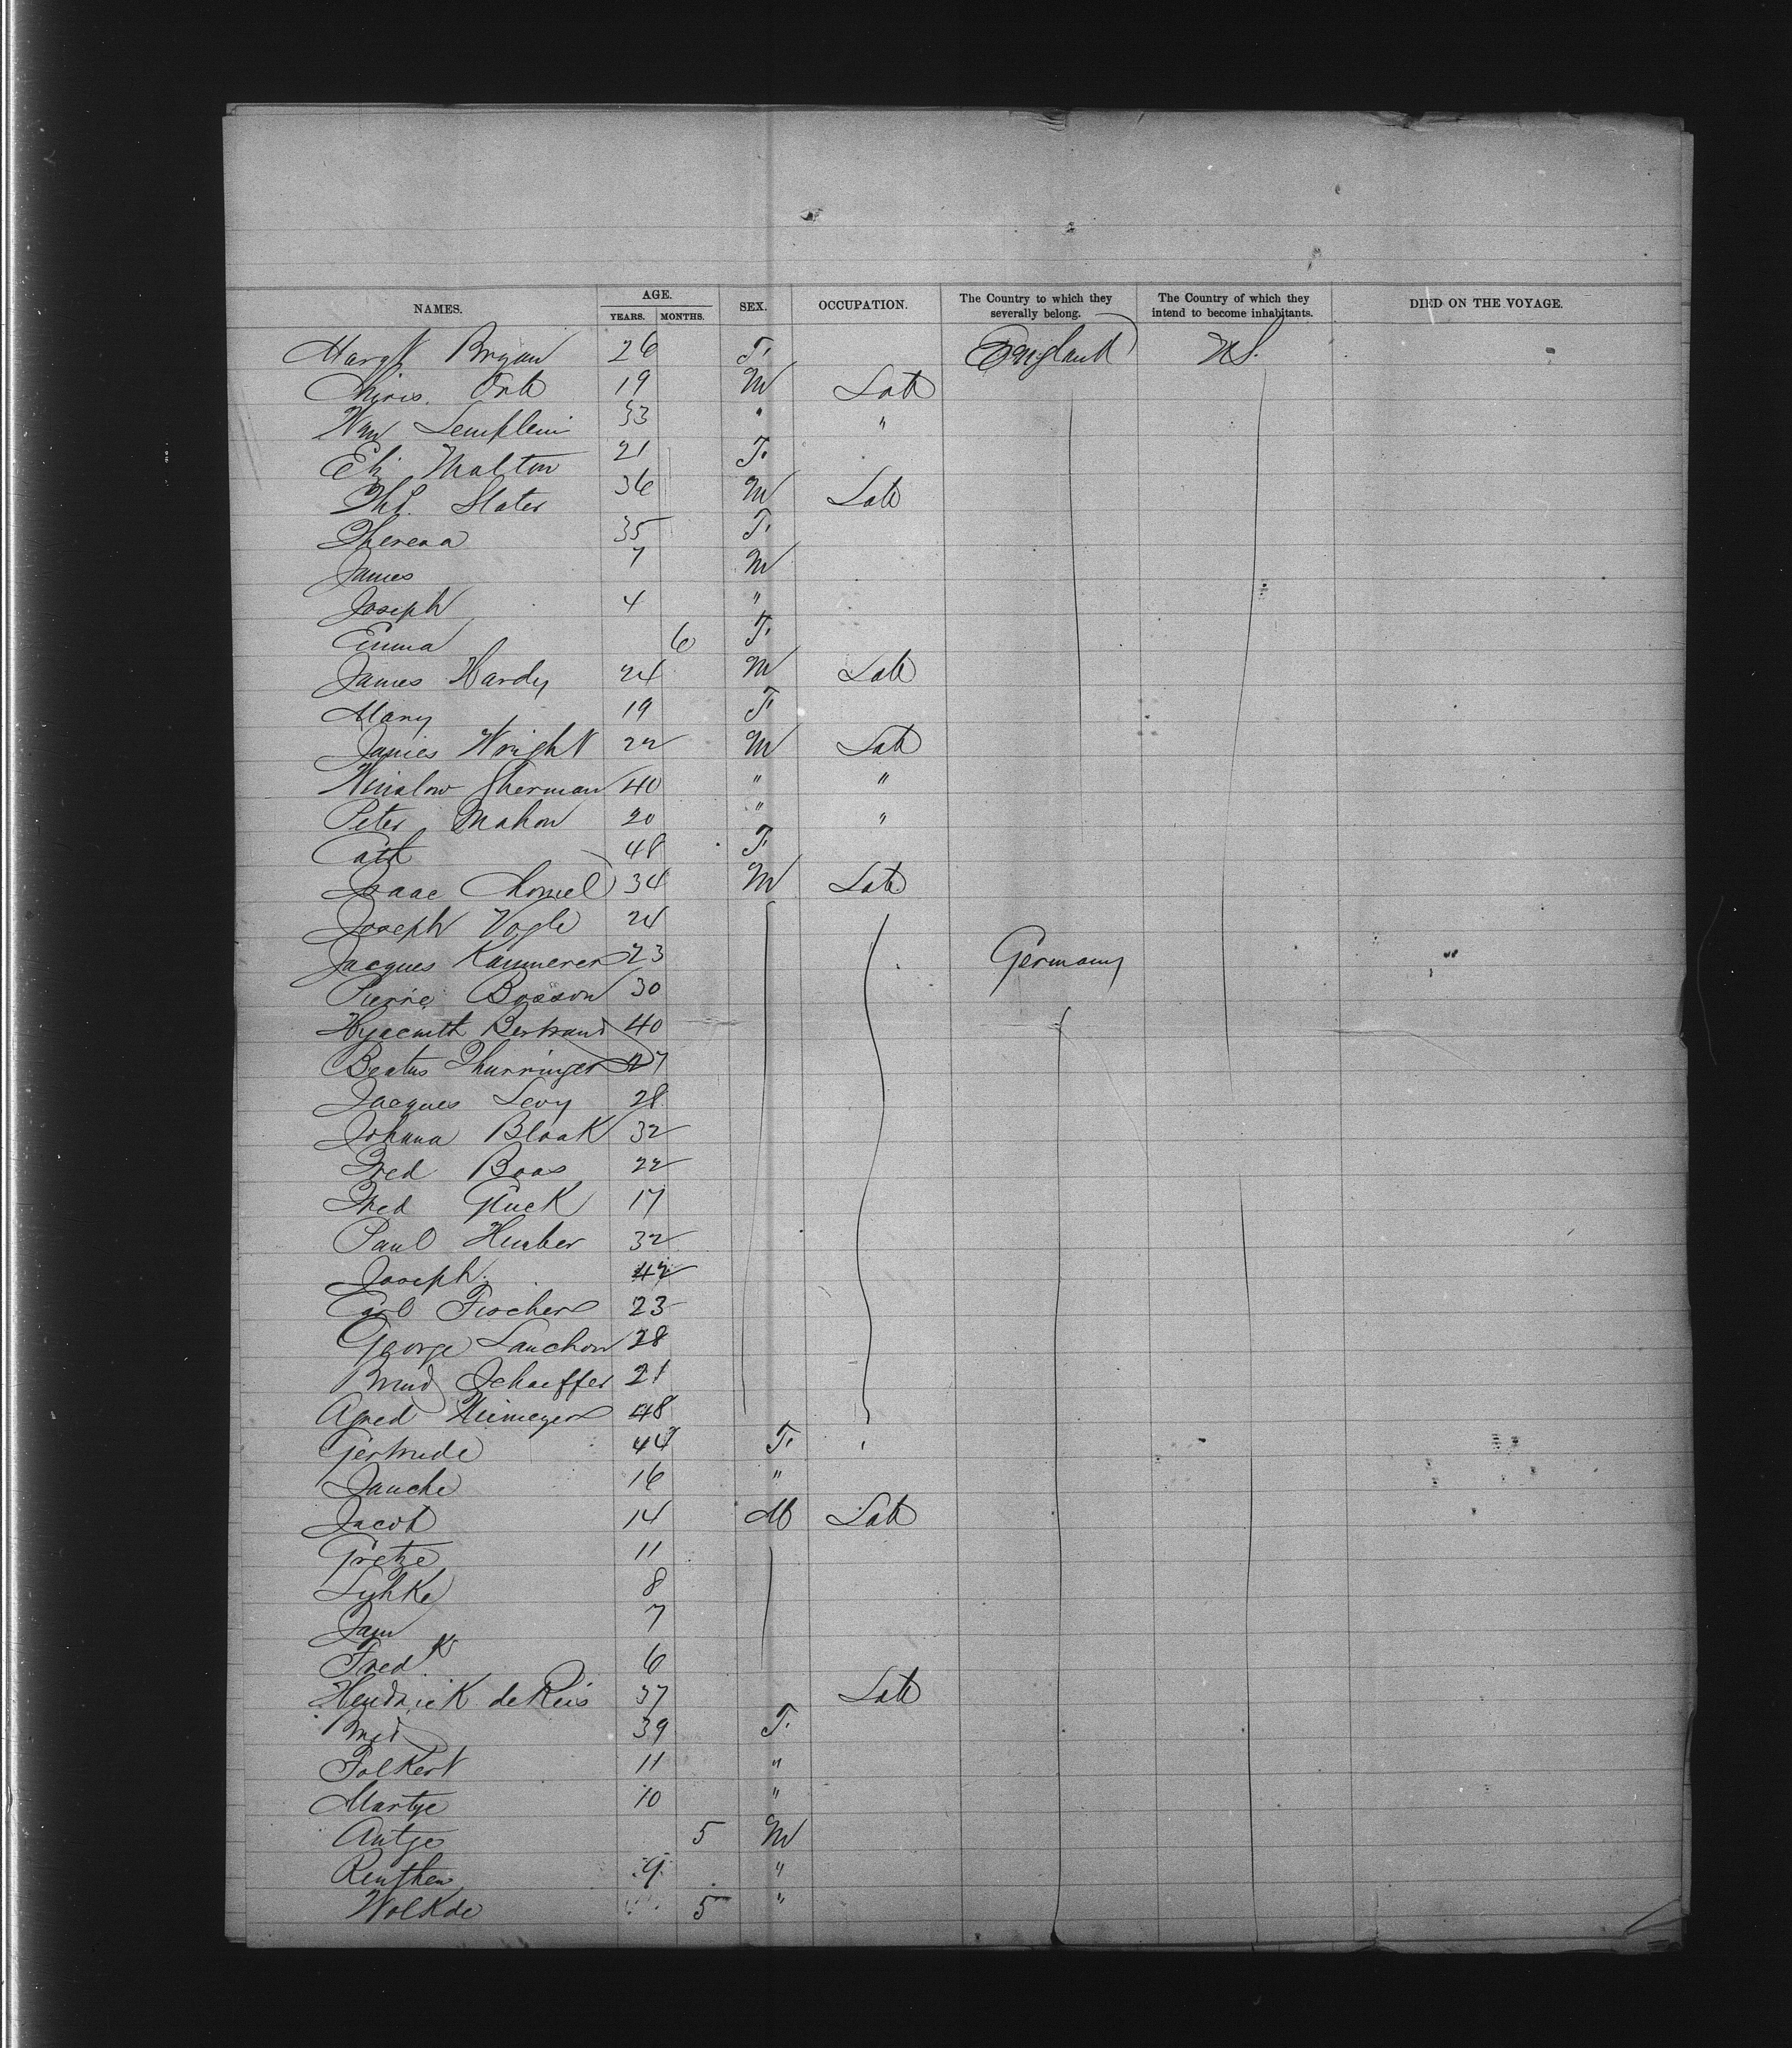 NAMES. AGE. SEX. OCCUPATION. The Country to which they severally belong. The Country of which they intend to become inhabitants. DIED ON THE VOYAGE.
YEARS. MONTHS.
Margt Bryan 26 F. England U.S.
Chris. Orb 19 M Lab
Wm 33 " "
Eliz Malton 21 F.
Thos. Slater 36 M Lab
Theresa 35 F.
James 7 M
Joseph 4 "
Emma 6 F.
James Hardy 24 M Lab
Mary 19 F.
James Wright 22 M Lab
Winslow Sherman 40 " "
Peter Mahon 20 " "
Cath 48 F.
Isaac 34 M Lab.
Joseph Vogle 24
Jacques Kammerer 23 Germany
Pierre Bosson 30
Hyacinth Bertrand 40
Beatus Thurringer 27
Jacques Levy 28
Johana Blaak 32
Fred Boas 22
Fred Gluck 17
Paul Humber 32
Joseph 42
Carl Fischer 23
George Lauchon 28
Schaeffer 21
Niemeyer 48
Gertrude 44 F.
Jauche 16 "
Jacob 14 M Lab
Gretze 11
Lyhke 8
Jam 7
Fredk 6
Hendrick de Reis 37 Lab
39 F.
Folkert 11 "
Martje 10 "
Antje 5 M
9 "
Wolkde 5 "